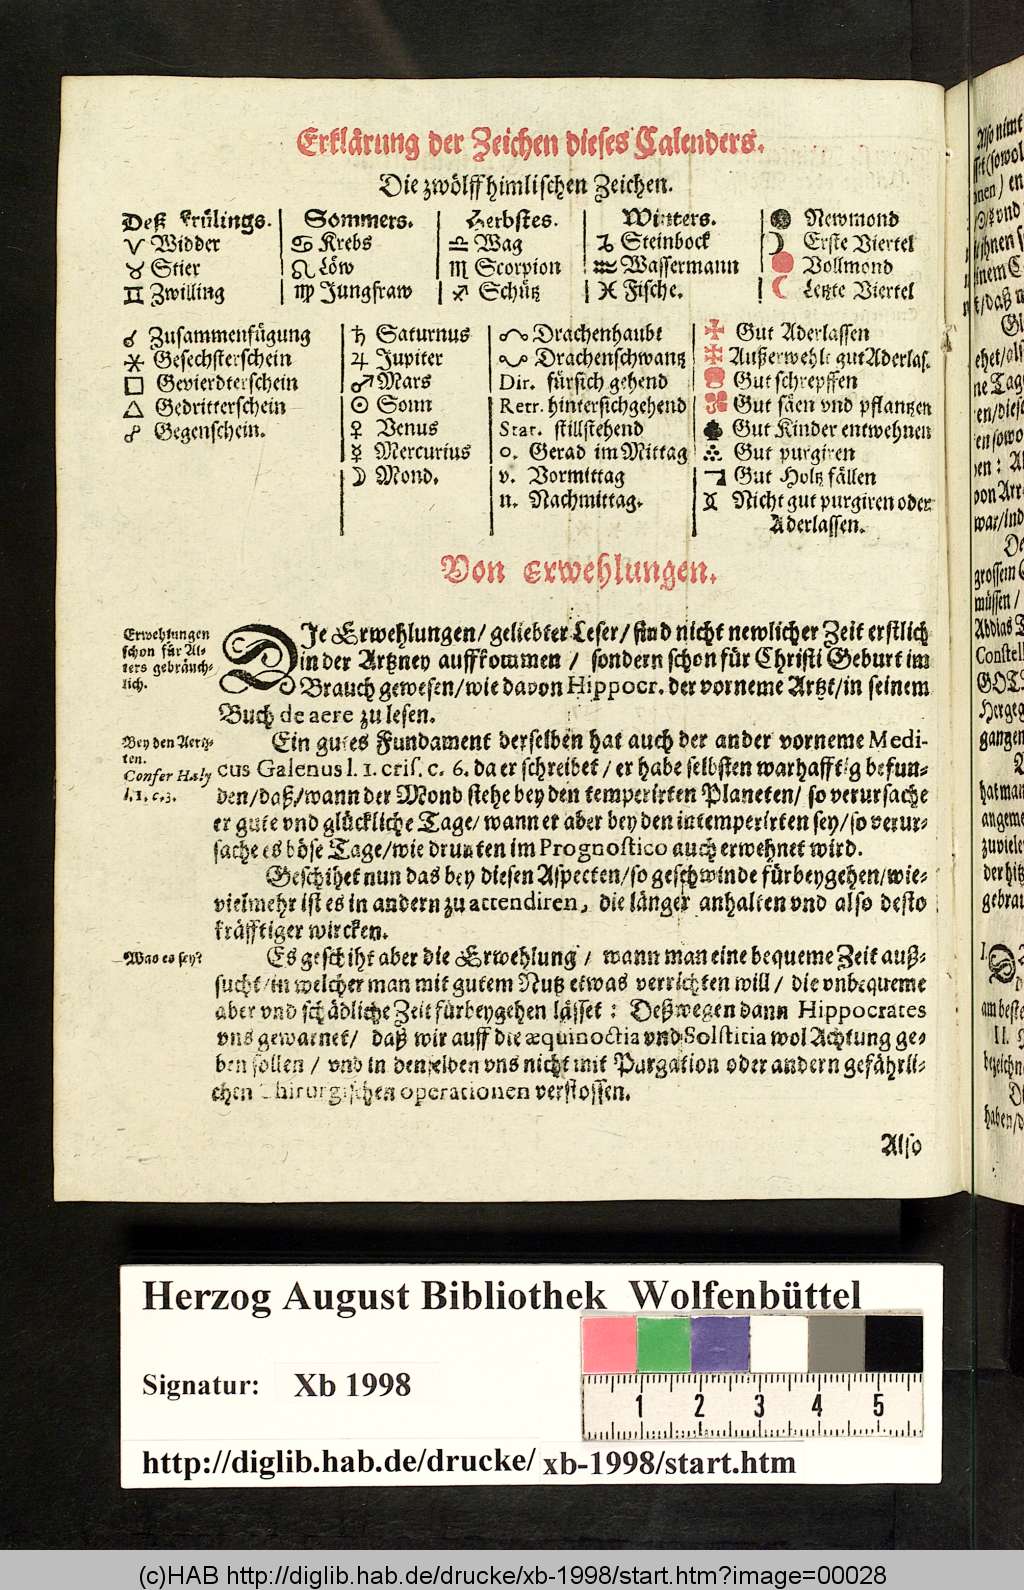 Erklärung der Zeichen dieses Calenders.
Die zwölff himlischen Zeichen.
Deß Frülings.
♈ Widder
♉ Stier
♊ Zwilling
Sommers.
♋ Krebs
♌ Löw
♍ Jungfraw
Herbstes.
♎ Wag
♏ Scorpion
♐ Schütz
Winters.
♑ Steinbock
♒ Wassermann
♓ Fische.
● Newmond
☽ Erste Viertel
● Vollmond
☾ Letzte Viertel
☌ Zusammenfügung
⚹ Gesechsterschein
□ Gevierdterschein
△ Gedritterschein
☍ Gegenschein.
♄ Saturnus
♃ Jupiter
♂ Mars
☉ Sonn
♀ Venus
☿ Mercurius
☽ Mond.
☊ Drachenhaubt
☋ Drachenschwantz
Dir. fürsich gehend
Retr. hintersichgehend
Stat. stillstehend
o. Gerad im Mittag
v. Vormittag
n. Nachmittag.
Gut Aderlassen
Außerwehlt gut Aderlas.
Gut schrepffen
Gut säen vnd pflantzen
Gut Kinder entwehnen
Gut purgiren
Gut Holtz fällen
Nicht gut purgiren oder
Aderlassen.
Von Erwehlungen.
Erwehlungen
schon für Al-
ters gebräuch-
lich.
DIe Erwehlungen/ geliebter Leser/ sind nicht newlicher Zeit erstlich
in der Artzney auffkommen / sondern schon für Christi Geburt im
Brauch gewesen/ wie davon Hippocr. der vorneme Artzt/ in seinem
Buch de aere zu lesen.
Bey den Aertz-
ten.
Confer Haly
l. 1. c. 3.
Ein gutes Fundament derselben hat auch der ander vorneme Medi-
cus Galenus l. 1. cris. c. 6. da er schreibet / er habe selbsten warhafftig befun-
den/ daß/ wann der Mond stehe bey den temperirten Planeten/ so verursache
er gute vnd glückliche Tage/ wann er aber bey den intemperirten sey/ so verur-
sache es böse Tage/ wie drunten im Prognostico auch erwehnet wird.
Geschihet nun das bey diesen Aspecten/ so geschwinde fürbeygehen/ wie-
vielmehr ist es in andern zu attendiren, die länger anhalten vnd also desto
kräfftiger wircken.
Was es sey?
Es geschiht aber die Erwehlung / wann man eine bequeme Zeit auß-
sucht/ in welcher man mit gutem Nutz etwas verrichten will / die vnbequeme
aber vnd schädliche Zeit fürbeygehen lässet : Deßwegen dann Hippocrates
vns gewarnet/ daß wir auff die æquinoctia vnd Solstitia wol Achtung ge-
ben sollen / vnd in denselben vns nicht mit Purgation oder andern gefährli-
chen Chirurgischen operationen verstossen.
Also
Herzog August Bibliothek Wolfenbüttel
Signatur: Xb 1998
1 2 3 4 5
http://diglib.hab.de/drucke/ xb-1998/start.htm
(c)HAB http://diglib.hab.de/drucke/xb-1998/start.htm?image=00028